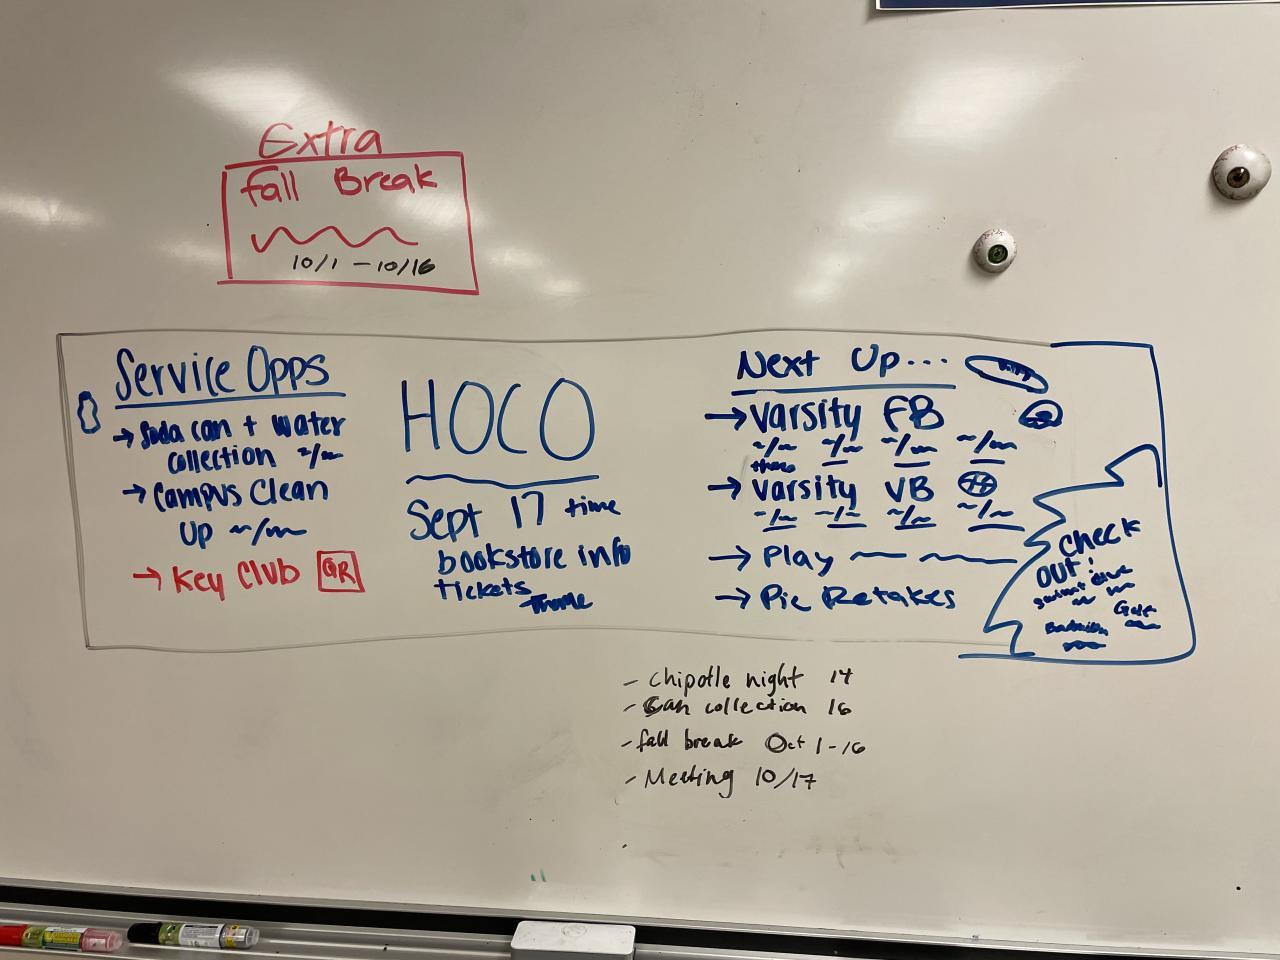 Extra
Fall Break
10/1 - 10/16
Service Opps
→ Soda can + water
collection
→ Campus Clean
Up
→ Key Club QR
HOCO
Sept 17 time
bookstore info
tickets
theme
Next Up...
→ Varsity FB
→ Varsity VB
→ Play
→ Pic Retakes
Check
out!
- Chipotle night 14
- Can collection 16
- fall break Oct 1-16
- Meeting 10/17